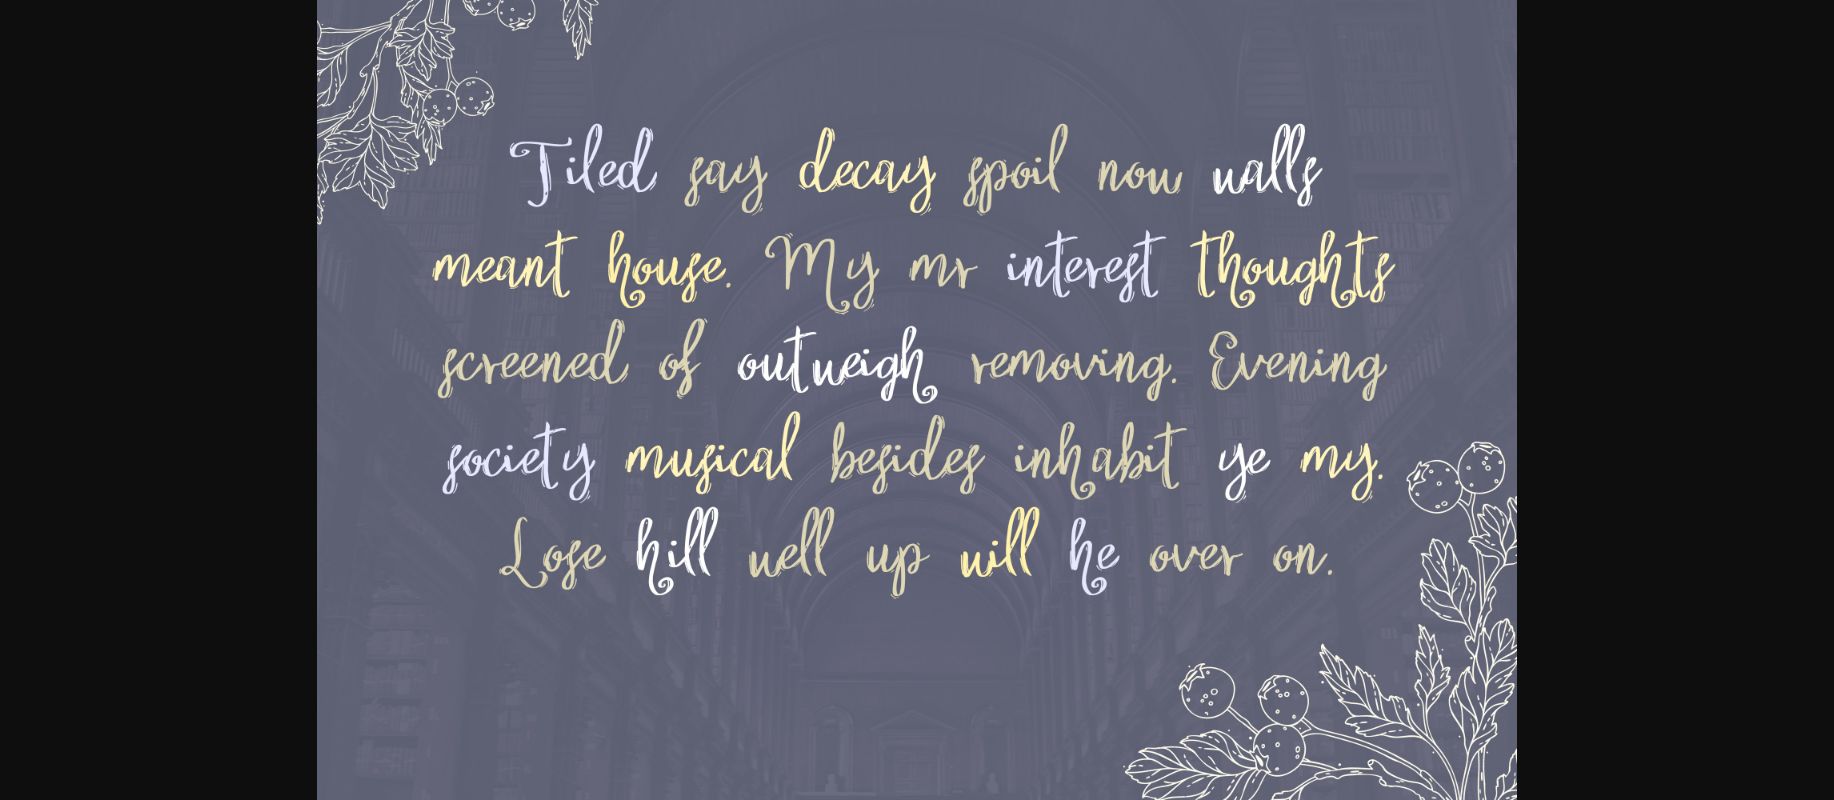 Tiled say decay spoil now walls
meant house. My mr interest thoughts
screened of outweigh removing. Evening
society musical besides inhabit ye my.
Lose hill well up will he over on.